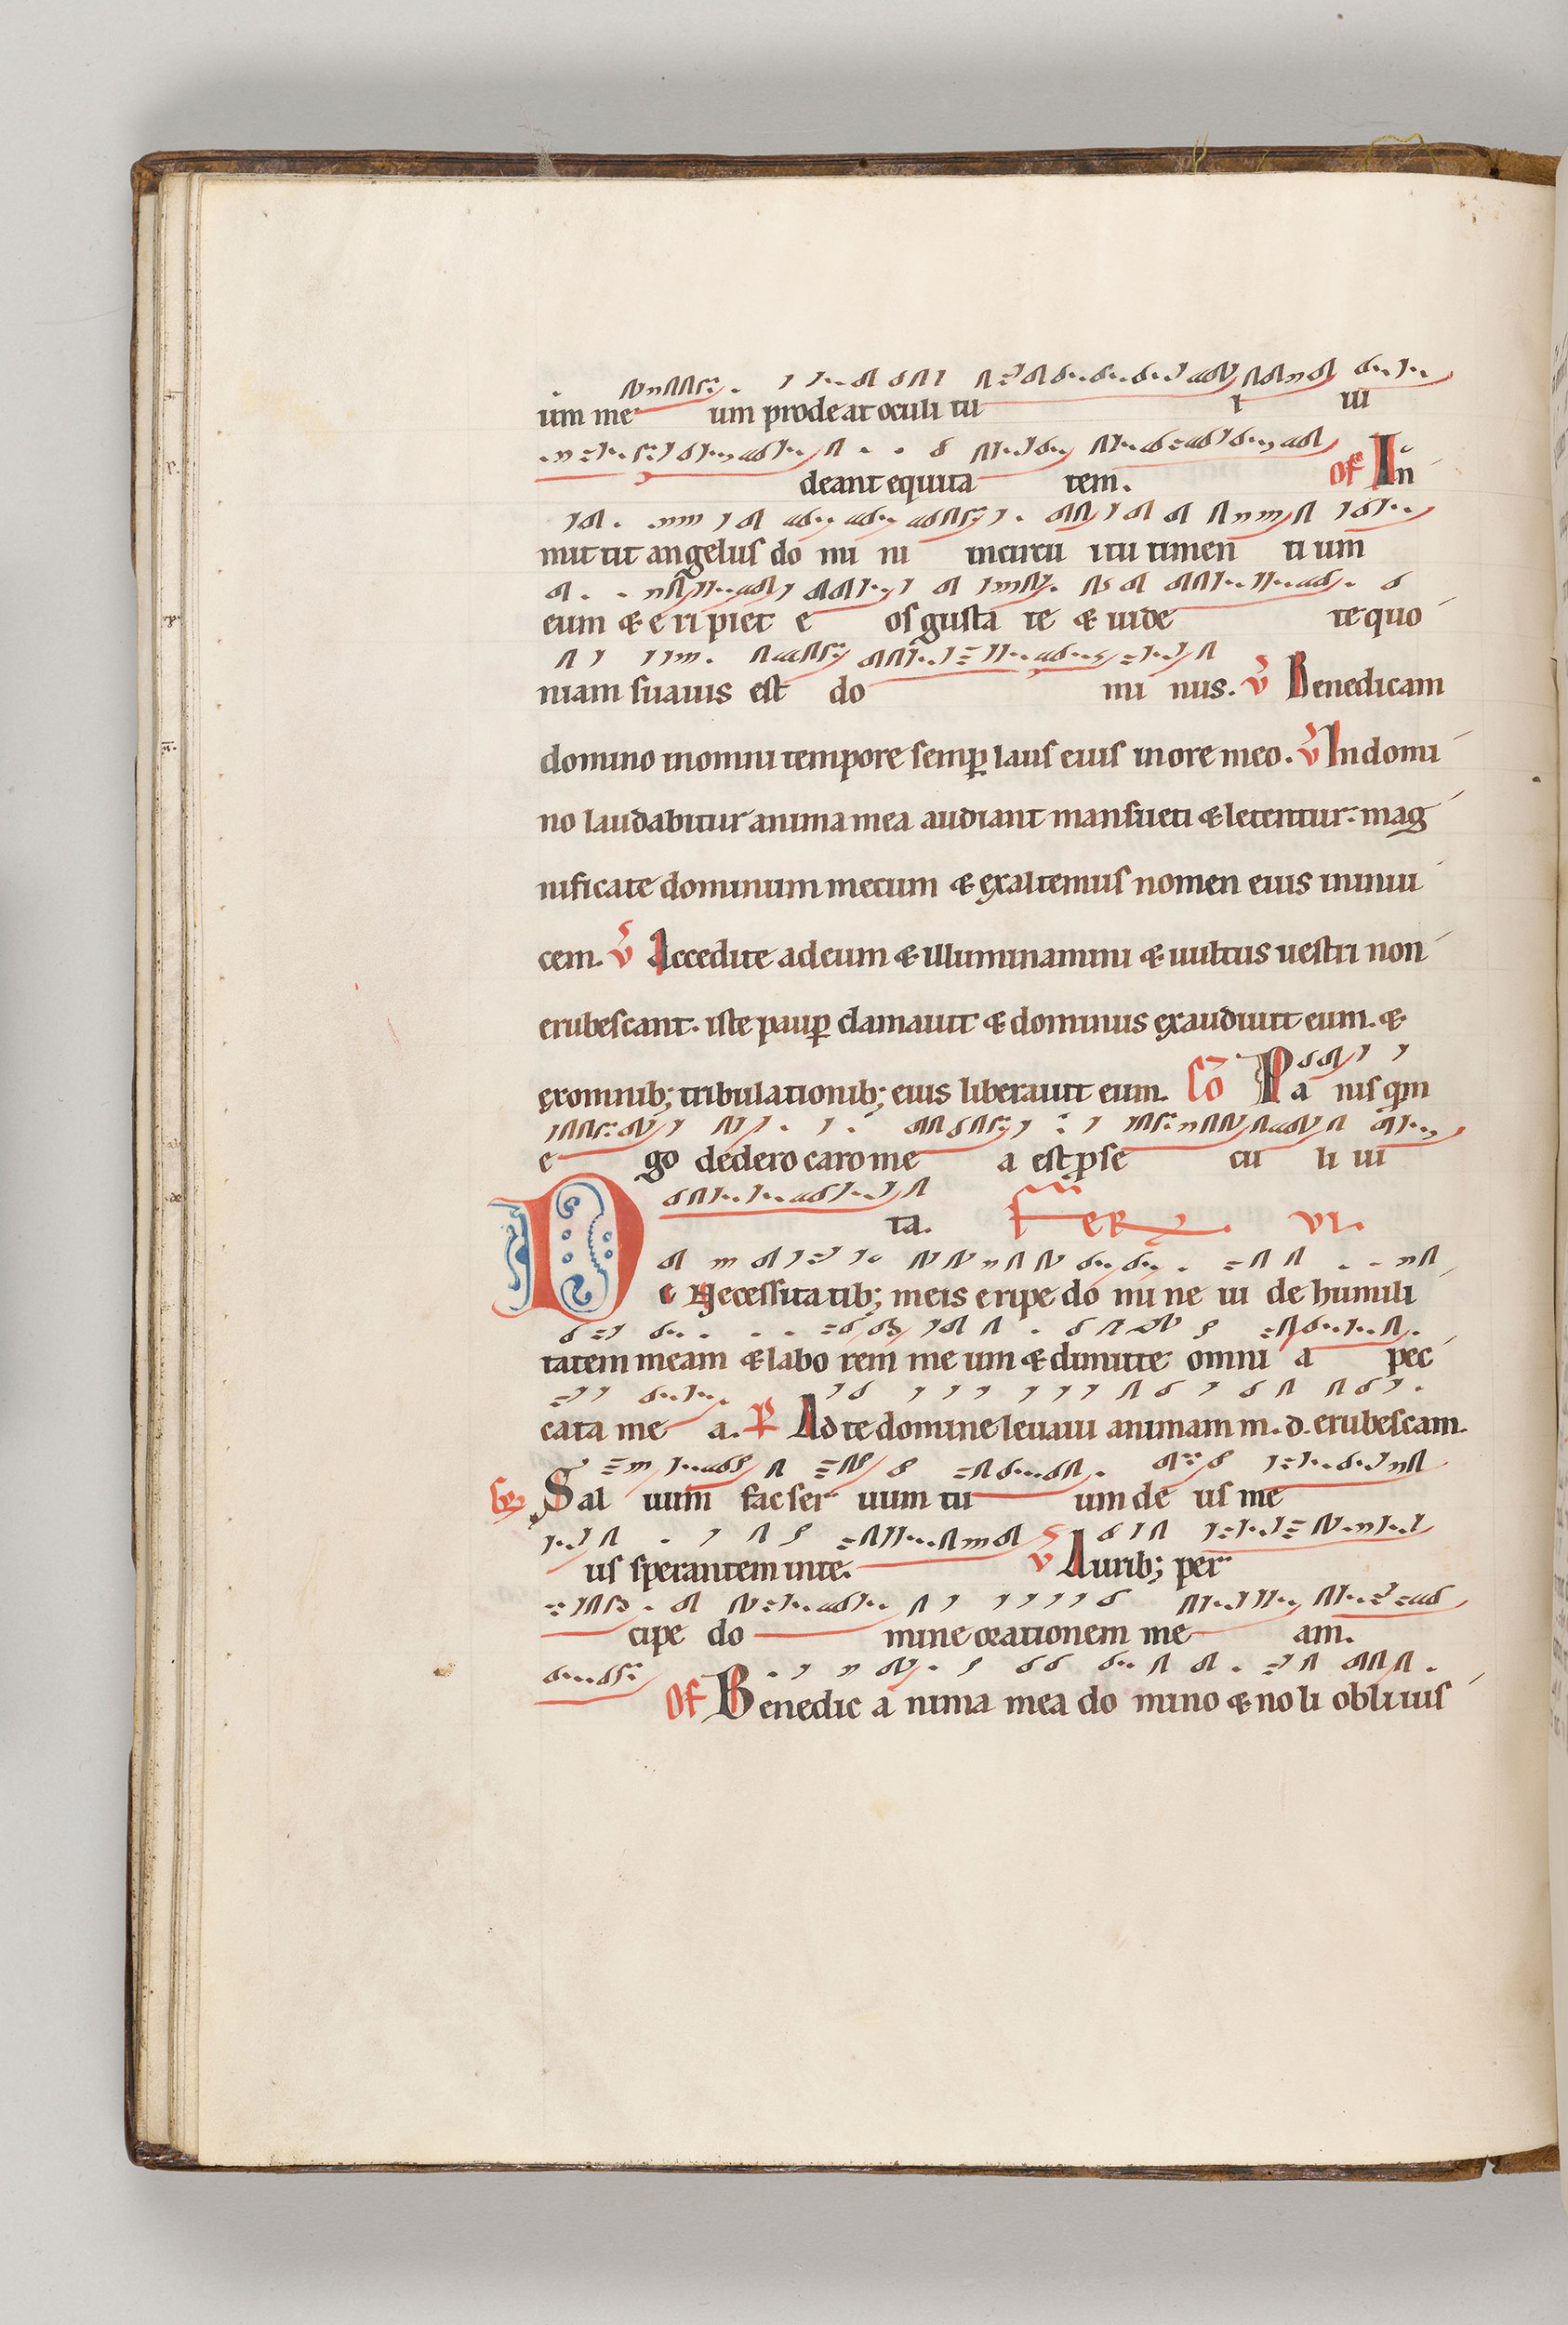 um me um prodeat oculi tu i ui
deant equita tem. Of In
mit tit angelus do mi ni incircu itu timen ti um
eum & e ri piet e os gusta te & uide te quo
niam suauis est do mi nus. V Benedicam
domino inomni tempore semp laus eius inore meo. V Indomi
no laudabitur anima mea audiant mansueti & letentur: mag
nificate dominum mecum & exaltemus nomen eius ininui
cem. V Accedite adeum & illuminamini & uultus uestri non
erubescant. iste paup clamauit & dominus exaudiuit eum. &
exomnib; tribulationib; eius liberauit eum. Co Pa nis qm
e go dedero caro me a est pse cu li ui
ta. Fer VI.
De Necessita tib; meis eripe do mi ne ui de humili
tatem meam & labo rem me um & dimitte omni a pec
cata me a. P Ad te domine leuaui animam m. d. erubescam.
Sal uum fac ser uum tu um de us me
us sperantem inte. V Aurib; per
cipe do mine orationem me am.
Of Benedic a nima mea do mino & no li obliuis